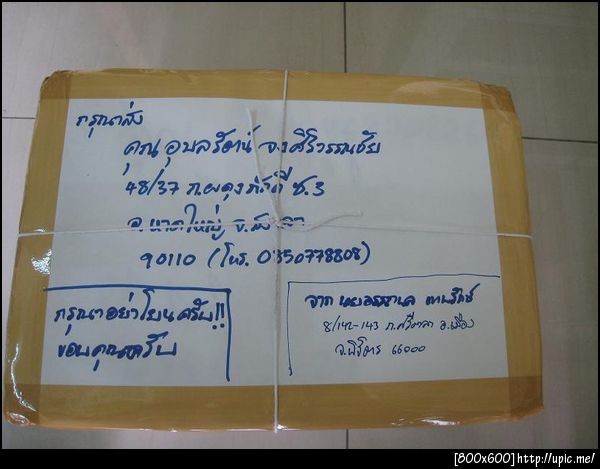 กรุณาส่ง
คุณ อุบลรัตน์ จงศิริวรรณชัย
48/37 ถ.ผดุงภักดี ซ.3
อ.หาดใหญ่ จ.สงขลา
90110 (โทร. 0850778808)
กรุณาอย่าโยนครับ!!
ขอบคุณครับ
จาก
8/142-143 ถ.ศรีมาลา อ.เมือง
จ.พิจิตร 66000
[800x600]http://upic.me/